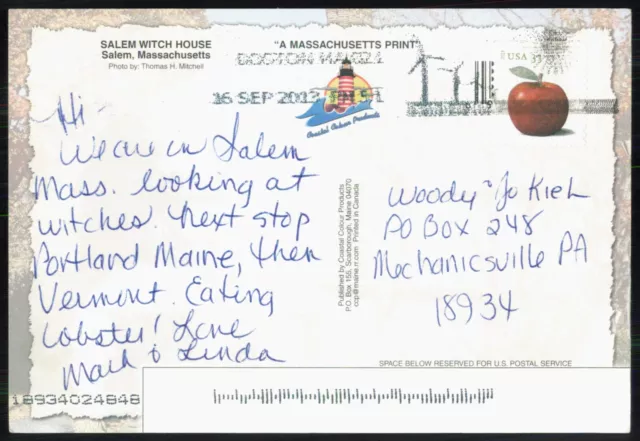 SALEM WITCH HOUSE
Salem, Massachusetts
Photo by: Thomas H. Mitchell
"A MASSACHUSETTS PRINT"
16 SEP 2012
USA
Coastal Colour Products
Hi -
We are in Salem
Mass. looking at
witches. Next stop
Portland Maine, then
Vermont. Eating
Lobster! Love
Mark & Linda
Published by Coastal Colour Products
P.O. Box 155, Scarborough, Maine 04070
ccp@maine.rr.com Printed in Canada
Woody & Jo Kieh
PO Box 248
Mechanicsville PA
18934
SPACE BELOW RESERVED FOR U.S. POSTAL SERVICE
18934024848